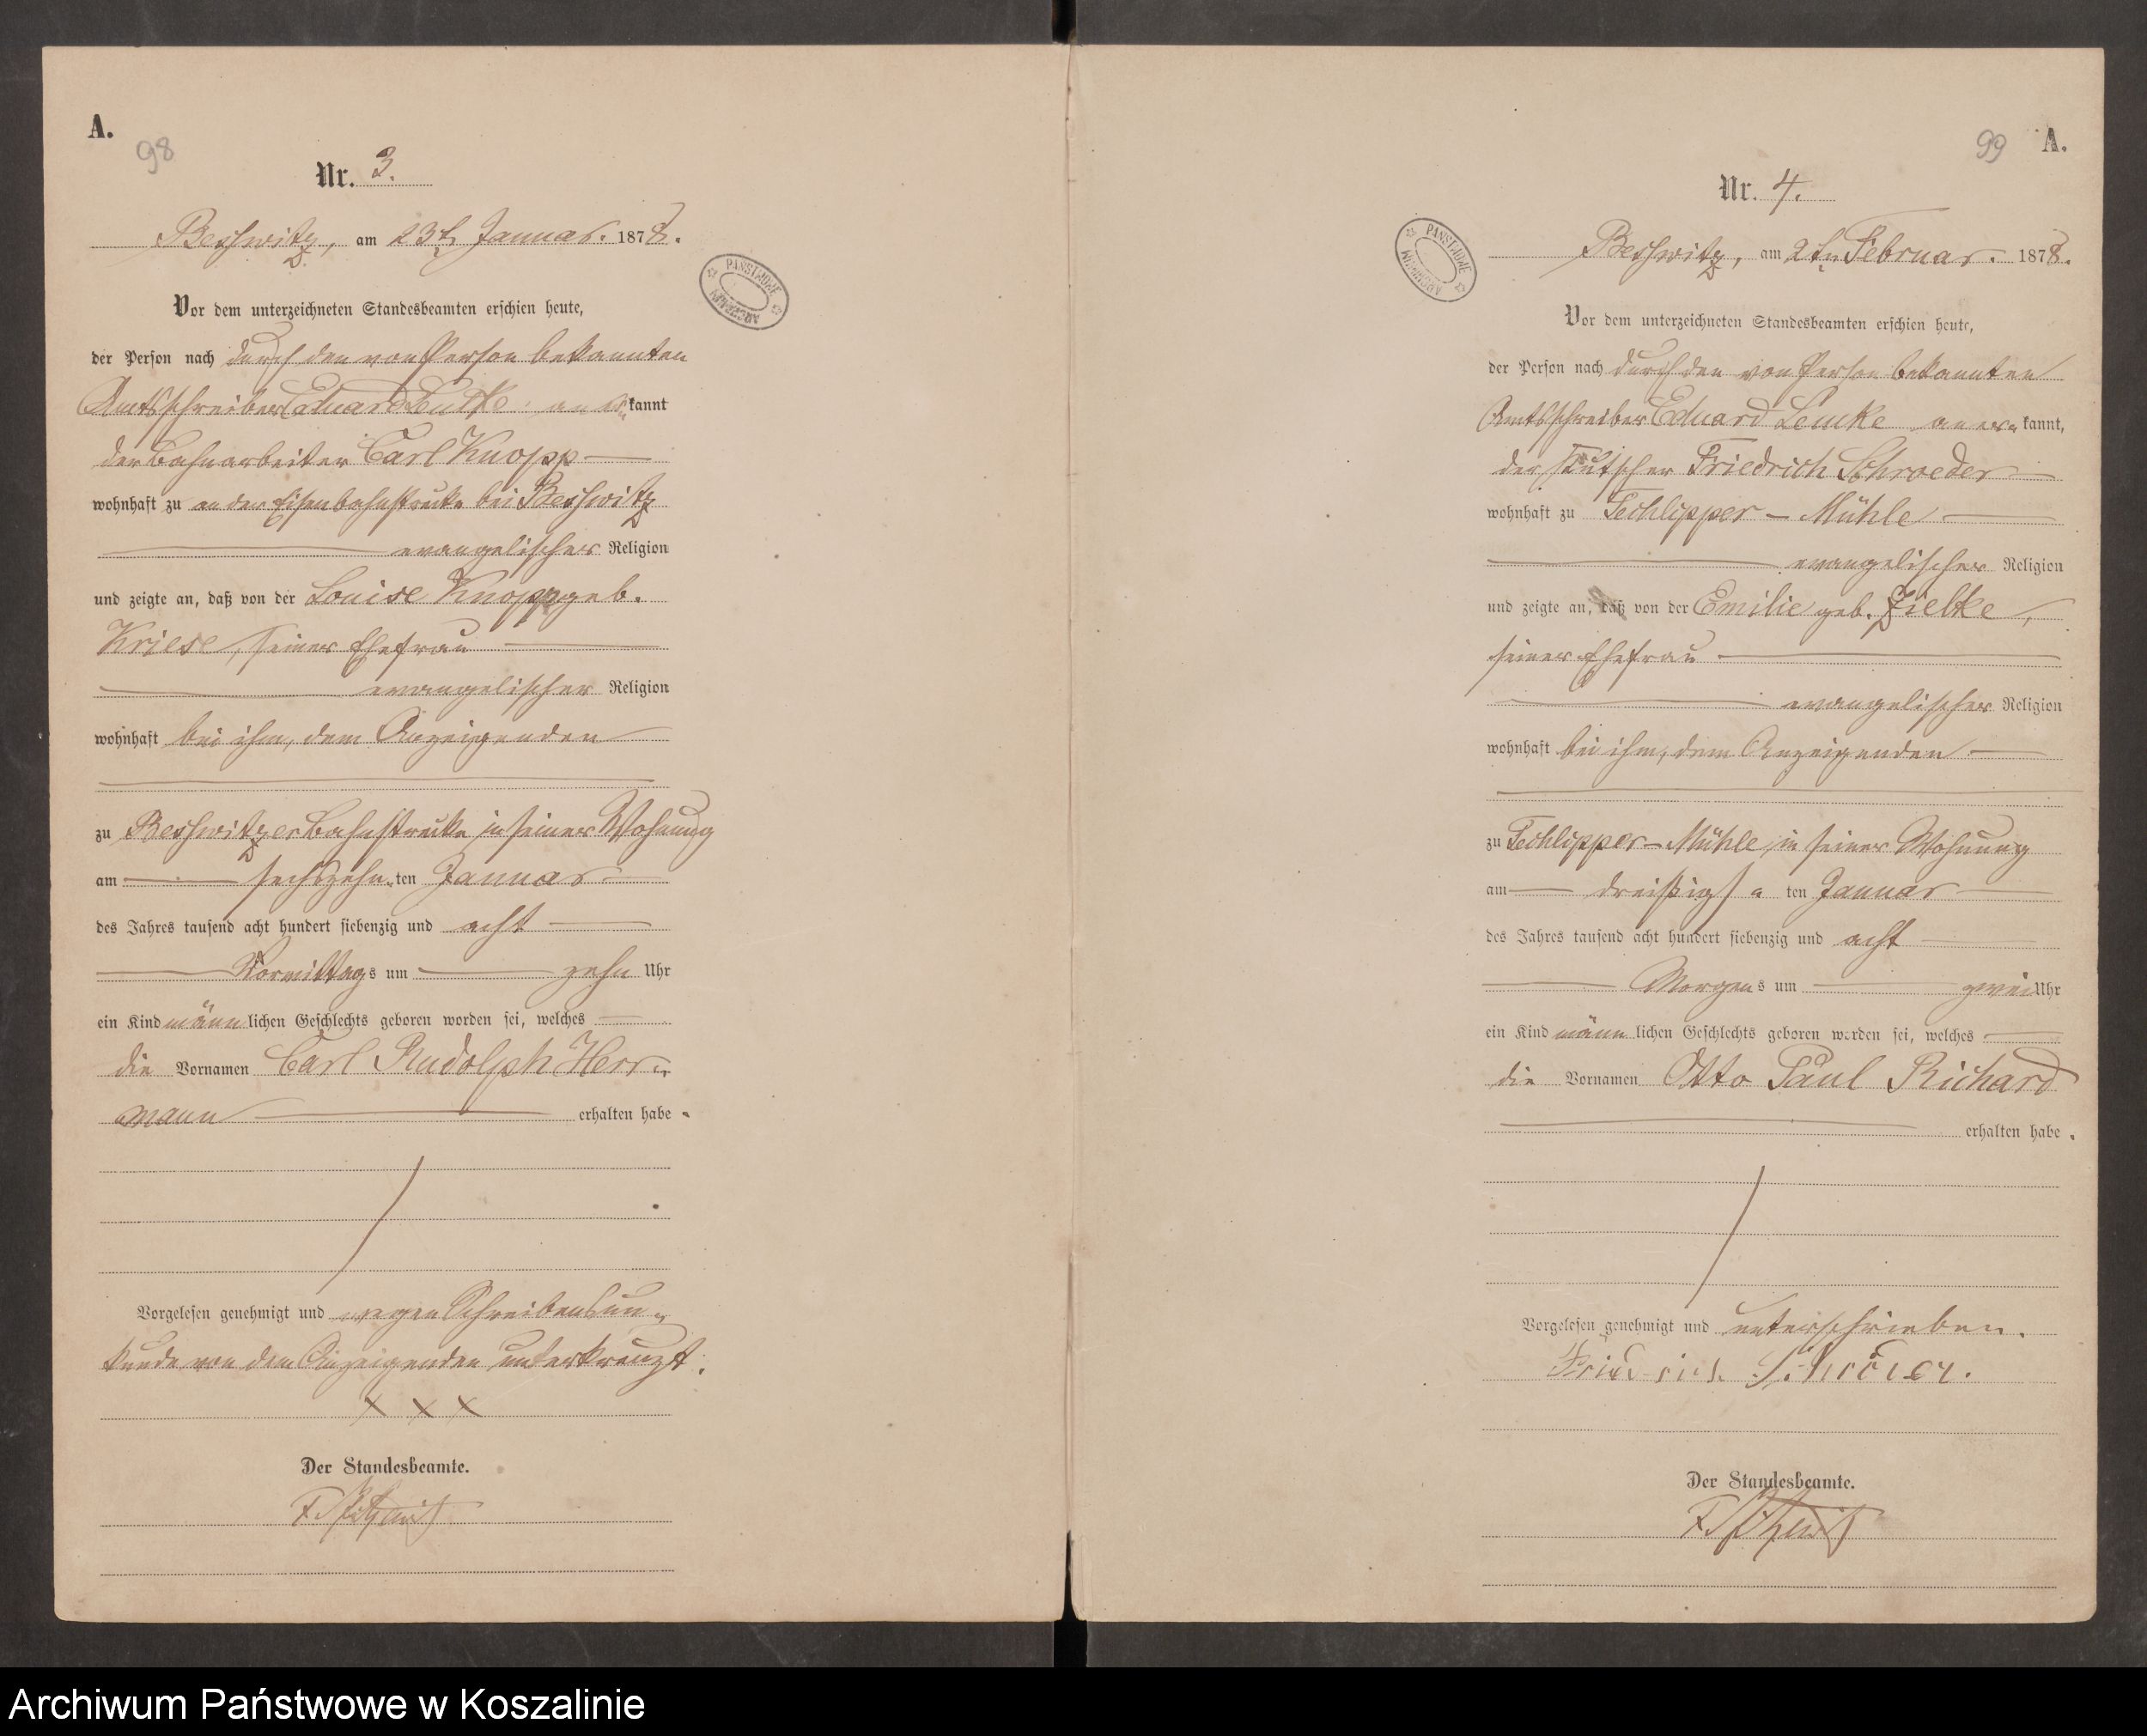 A.
98
Nr. 3.
Beßwitz, am 23t. Januar. 1878.
PAŃSTWOWE ARCHIWUM
Vor dem unterzeichneten Standesbeamten erschien heute,
der Person nach durch den von Person bekannten
Amtsschreiber Eduard Lemke anerkannt
der Bahnarbeiter Carl Knopp
wohnhaft zu an der Eisenbahnstrecke bei Beßwitz
evangelischer Religion
und zeigte an, daß von der Louise Knopp geb.
Kriese, seiner Ehefrau
evangelischer Religion
wohnhaft bei ihm, dem Anzeigenden
zu Beßwitzer Bahnstrecke in seiner Wohnung
am sechszehnten Januar
des Jahres tausend acht hundert siebenzig und acht
Vormittags um zehn Uhr
ein Kind männlichen Geschlechts geboren worden sei, welches
die Vornamen Carl Rudolph Herr-
mann erhalten habe.
Vorgelesen genehmigt und wegen Schreibensun-
kunde von dem Anzeigenden unterkreuzt.
x x x
Der Standesbeamte.
99
A.
Nr. 4.
PAŃSTWOWE ARCHIWUM
Beßwitz, am 2ten Februar. 1878.
Vor dem unterzeichneten Standesbeamten erschien heute,
der Person nach durch den von Person bekannten
Amtsschreiber Eduard Lemke anerkannt,
der Kutscher Friedrich Schroeder
wohnhaft zu Techlipper-Mühle
evangelischer Religion
und zeigte an, daß von der Emilie geb. Zielke,
seiner Ehefrau
evangelischer Religion
wohnhaft bei ihm, dem Anzeigenden
zu Techlipper-Mühle, in seiner Wohnung
am dreißigsten Januar
des Jahres tausend acht hundert siebenzig und acht
Morgens um zwei Uhr
ein Kind männlichen Geschlechts geboren worden sei, welches
die Vornamen Otto Paul Richard
erhalten habe.
Vorgelesen genehmigt und unterschrieben.
Friedrich Schröder.
Der Standesbeamte.
Archiwum Państwowe w Koszalinie